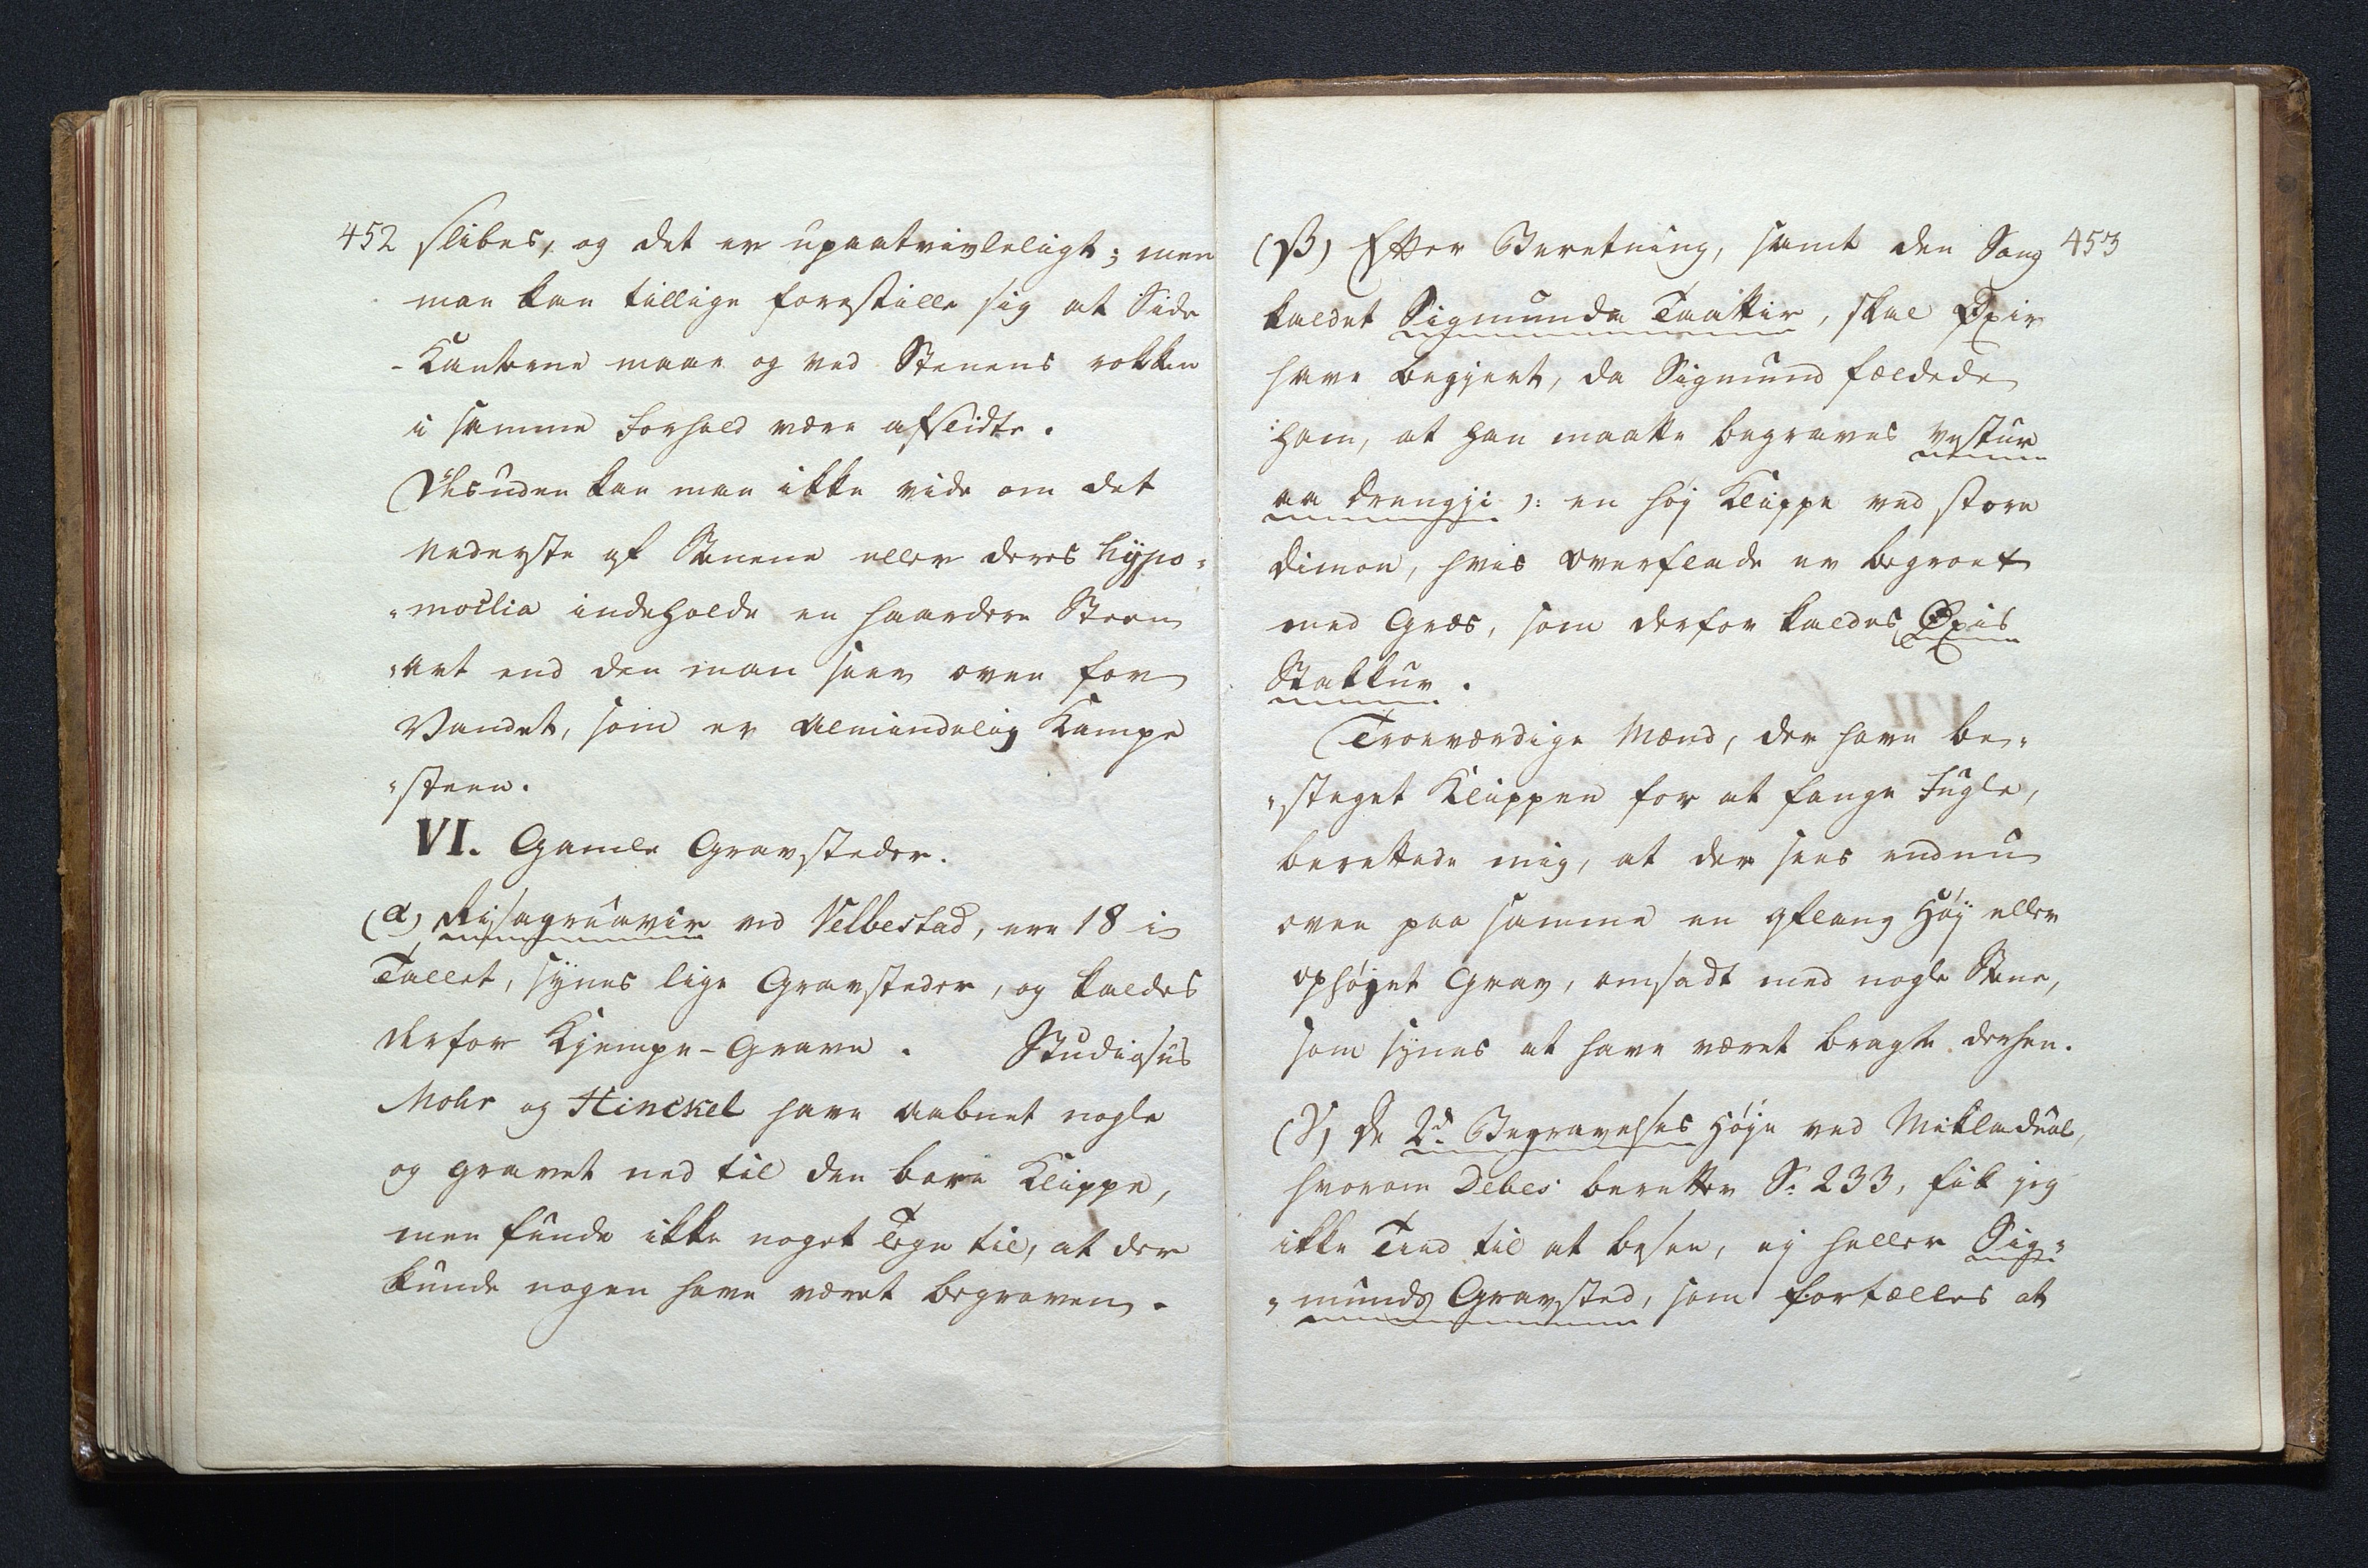 452 slibes, og det er upaatvivleligt; men
man kan tillige forestille sig at Side
-Kanterne maae og ved Stenens rokken
i samme Forhold være afslidte.
Desuden kan man ikke vide om det
Nederste af Stenene eller deres hypo-
-moclia indeholde en haardere Steen
-art end den man seer oven for
Vandet, som er almindelig Kampe
-steen.
VI. Gamle Gravsteder.
(α) Risagruavir ved Velbestad, ere 18 i
Tallet, synes lige Gravsteder, og kaldes
derfor Kjempe-Grave. Studiosus
Mohr og Hinckel have aabnet nogle
og gravet ned til den bare Klippe,
men funde ikke noget Tegn til, at der
kunde nogen have været begraven.
(β) Efter Beretning, samt den Sang 453
kaldet Sigmunda Taattir, skal Øxir
have begjert, da Sigmund fældede
ham, at han maatte begraves vestur
aa Drengji ɔ: en høj Klippe ved store
Dimon, hvis Overflade er begroet
med Græs, som derfor kaldes Øxis
Stakkur.
Troeværdige Mænd, der have be-
-steget Klippen for at fange Fugle,
berettede mig, at der sees endnu
oven paa samme en aflang Høj eller
ophøjet Grav, omsadt med nogle Stene,
som synes at have været bragte derhen.
(γ) De 2de Begravelses Høje ved Mikladual,
hvorom Debes beretter S. 233, fik jeg
ikke Tiid til at besee, ej heller Sig-
-munds Gravsted, som fortælles at